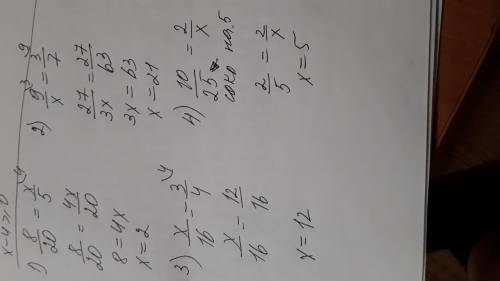 x-4≥0
1) 8/20 = x/5 \4
8/20 = 4x/20
8 = 4x
x = 2
2) 9/x \3 = 3/7 \9
27/3x = 27/63
3x = 63
x = 21
3) x/16 = 3/4 \4
x/16 = 12/16
x = 12
4) 10/25 = 2/x
сокр на 5
2/5 = 2/x
x = 5